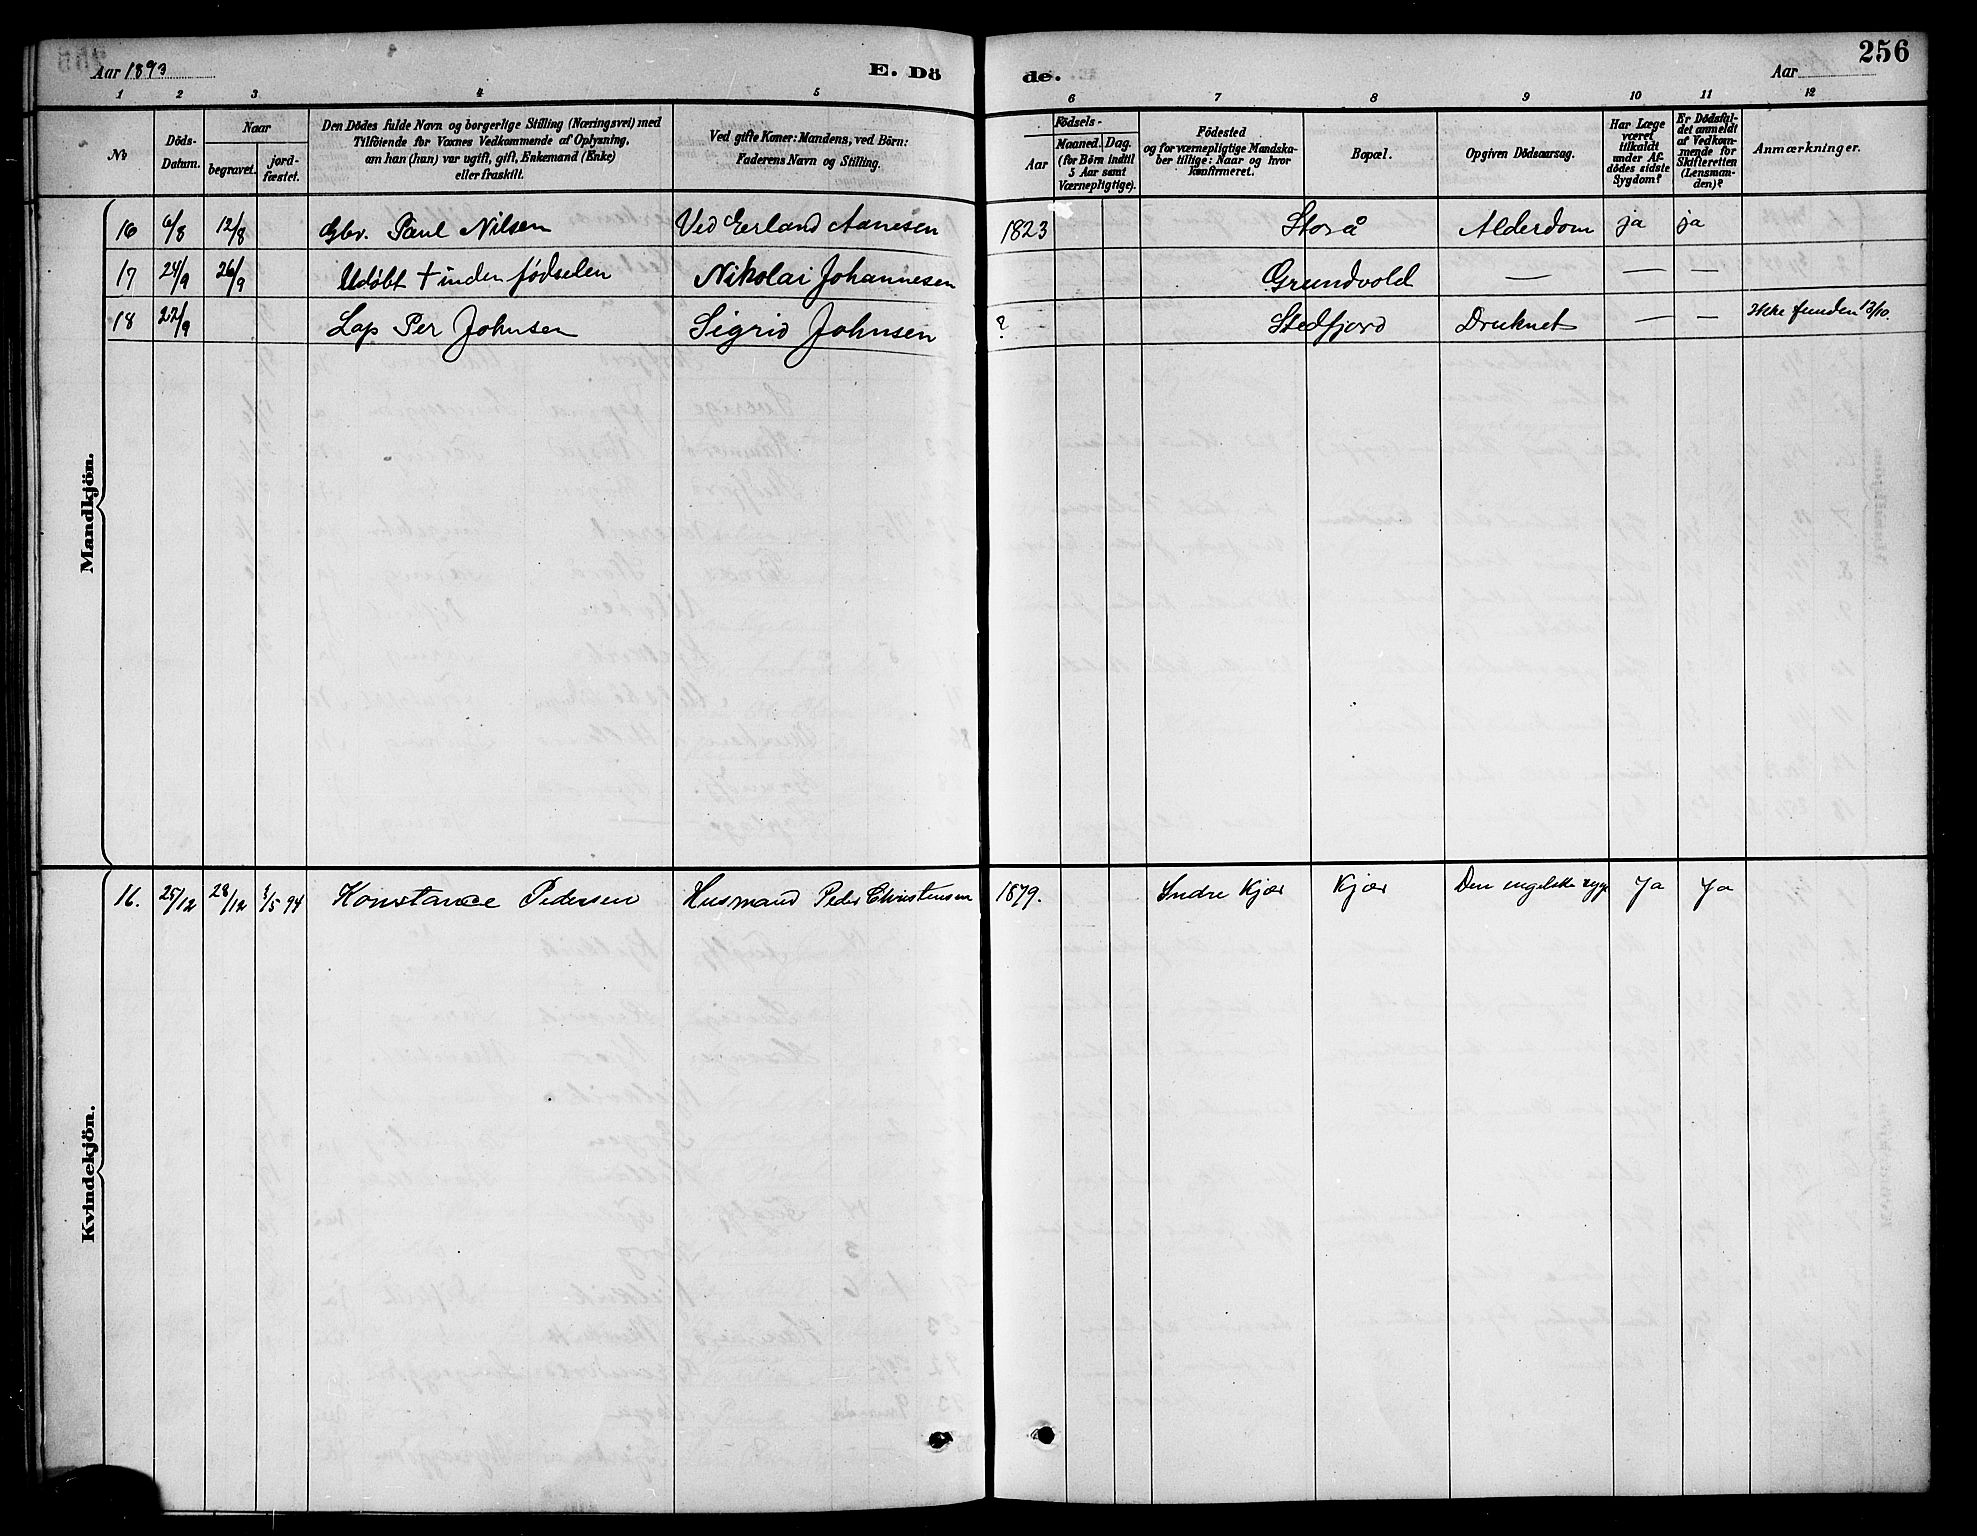 Aar 1893 E. Dö de. Aar 256
1 2 3 4 5 6 7 8 9 10 11 12
No
Döds-
Datum.
Naar
begravet.
jord-
fæstet.
Den Dödes fulde Navn og borgerlige Stilling (Næringsvei) med
Tilföiende for Voxnes Vedkommende af Oplysning,
om han (hun) var ugift, gift, Enkemand (Enke)
eller fraskilt.
Ved gifte Koner: Mandens, ved Börn:
Faderens Navn og Stilling.
Födsels-
Aar
Maaned. Dag.
(for Börn indtil
5 Aar samt
Værnepligtige).
Födested
og for værnepligtige Mandska-
ber tillige: Naar og hvor
konfirmeret.
Bopæl.
Opgiven Dödsaarsag.
Har Læge
været
tilkaldt
under Af-
dödes sidste
Sygdom?
Er Dödsfal-
det anmeldt
af Vedkom-
mende for
Skifteretten
(Lensman-
den)?
Anmærkninger.
Mandkjön.
16 6/8 12/8 Gbr. Paul Nilsen Ved Erland Aanesen 1823 Storå Alderdom ja ja
17 24/9 26/9 Udöbt + inden födselen Nikolai Johannesen Grundvold — — —
18 22/9 Lap Per Johnsen Sigrid Johnsen ? Stedfjord Druknet — — Ikke funden 13/10.
Kvindekjön.
16. 25/12 28/12 1/5 94 Konstance Pedersen Husmand Peder Christensen 1879. Indre Kjær Kjær Den engelske syge Ja Ja